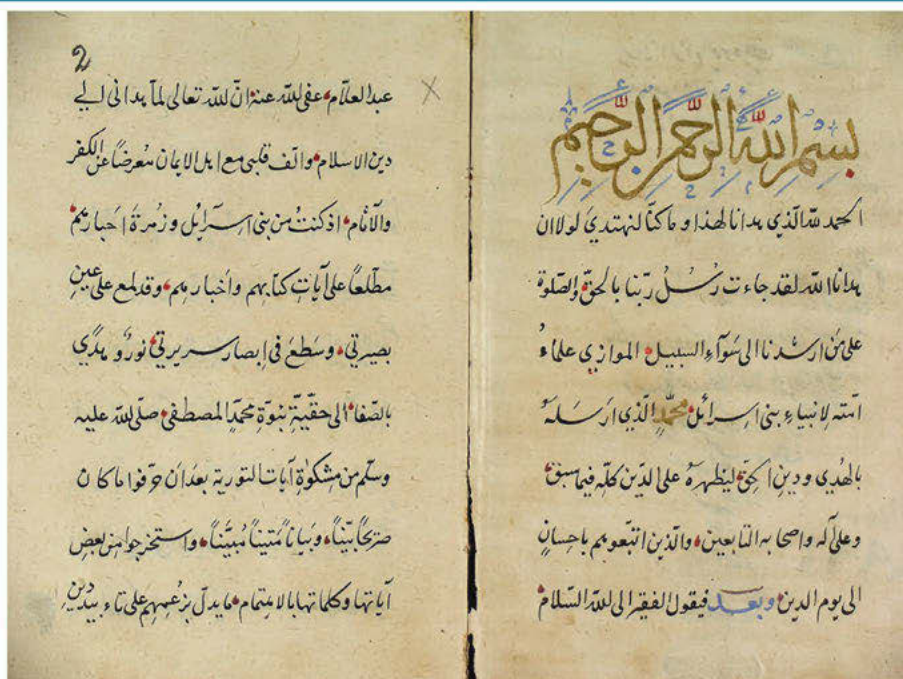 بسم الله الرحمن الرحيم
الحمد لله الذي هدانا لهذا وما كنّا لنهتدي لولا ان
هدانا الله لقد جاءت رُسُلُ ربّنا بالحقّ والصّلوة
على من ارشدنا الى سَوآءِ السبيل الموازي علماءُ
امّته لانبياءِ بنى اسرائل محمّدٍ الّذي ارسَلهُ
بالهُدي ودينِ الحقّ ليظهرهُ على الدّين كلّه فيما سبق
وعلى آله واصحابه التابعين والّذين اتبعوهم باحسانٍ
الى يوم الدين وبعد فيقول الفقير الى لله السّلام
2
عبد العلاّم عفى لله عنه انّ لله تعالى لمآ هدانى الي
دين الاسلام والّف قلبى مع اهل الايمان مُعرضاً عن الكفر
والآثام اذ كنتُ من بنى اسرآئل وزُمرة احبارهم
مطّلعاً على آيات كتابهم واخبارهم وقد لمع على عينِ
بصيرتي وسَطعَ فى ابصار سريرتي نورٌ وهدًي
بالصّفا الى حقّيّة نبوّة محمّدٍ المصطفى صلّى لله عليه
وسلّم من مشكوٰة آيات التورية بعد اَن حرّفوا ما كان
صرَيحاً بيّناً وبَياناً مُتيناً مُبيَّناً واستخرجوا من بعض
آياتها وكلماتها بالاهتمام ما يدلّ بزعمهم على تاءبيد دينِ